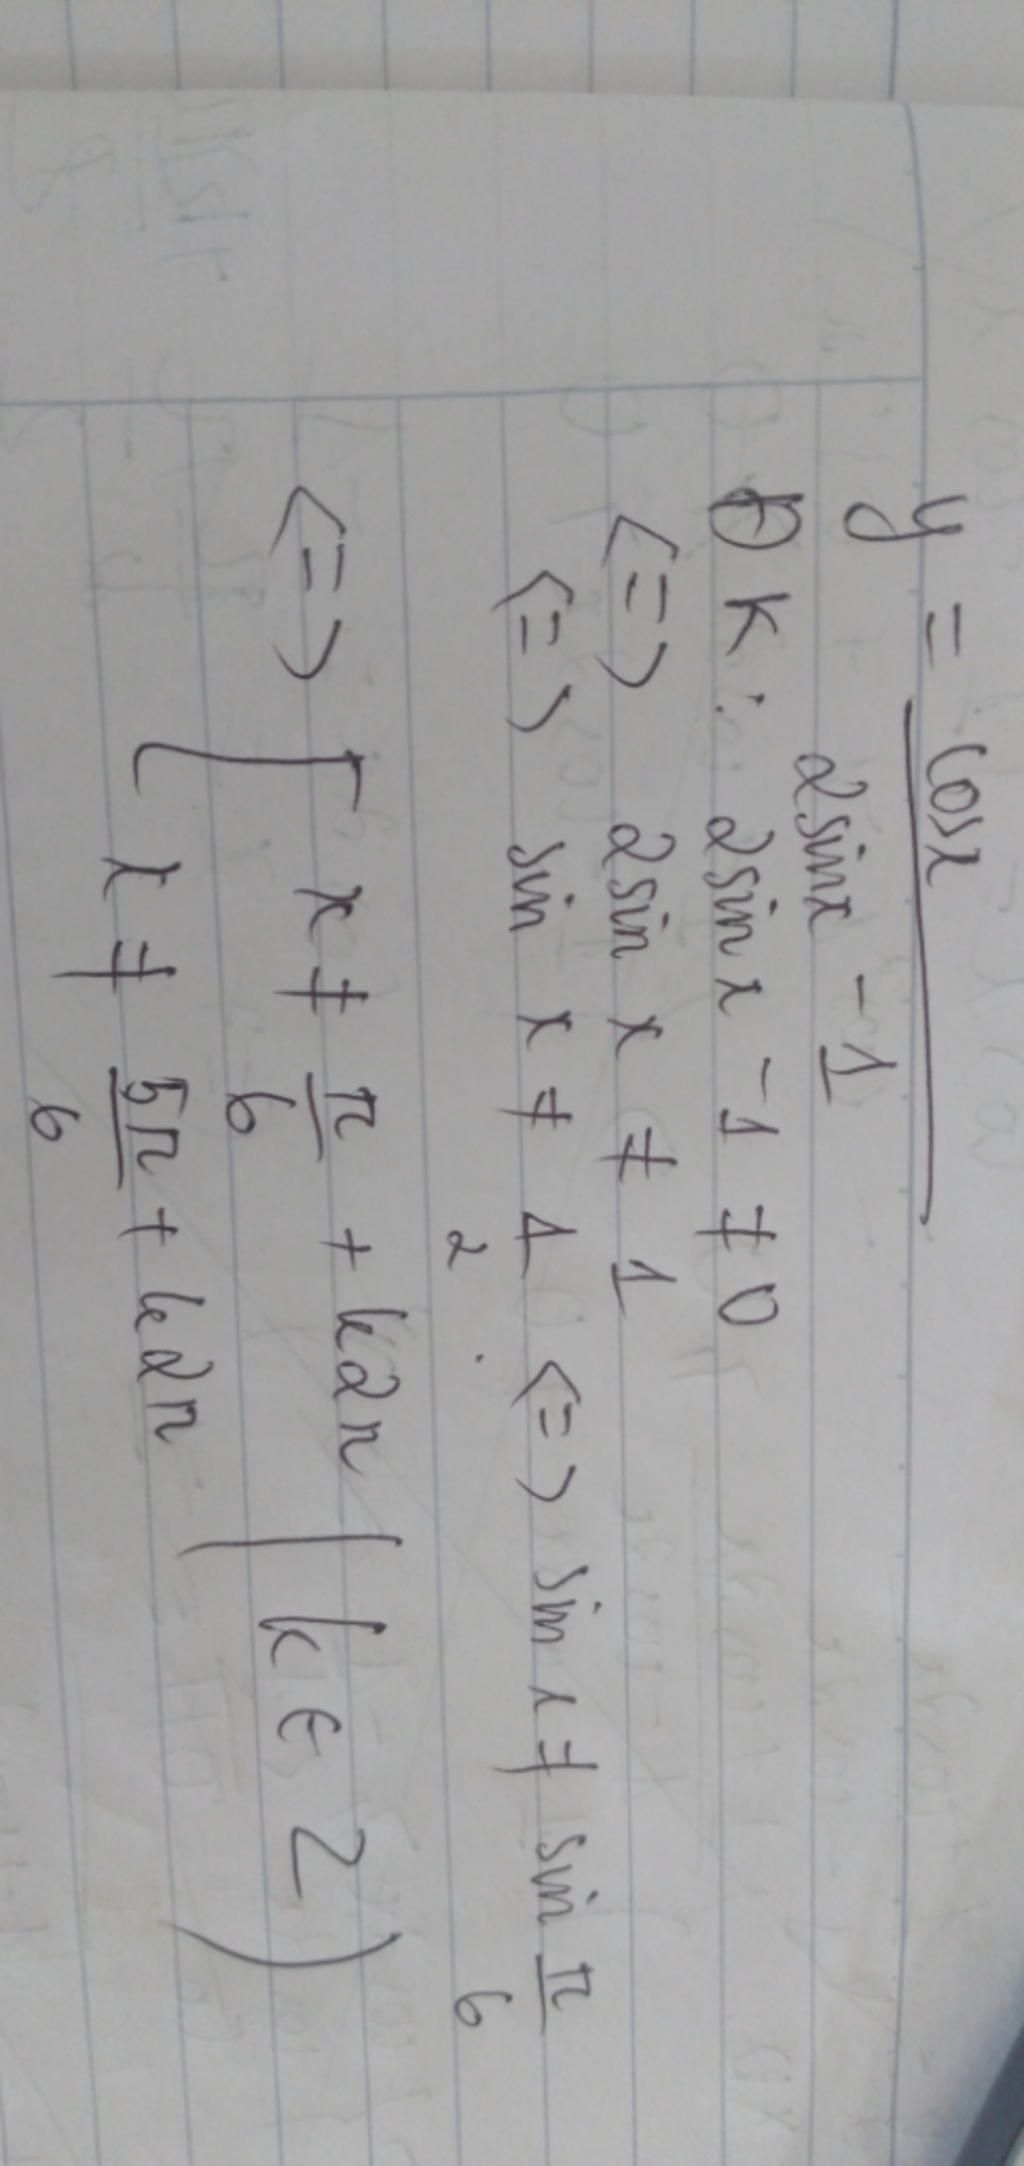 y = cosx
2sinx - 1
ĐK: 2sin x - 1 ≠ 0
<=> 2sin x ≠ 1
<=> sin x ≠ 1/2 <=> sin x ≠ sin π/6
<=> [ x ≠ π/6 + k2π (k ∈ Z)
x ≠ 5π/6 + k2π